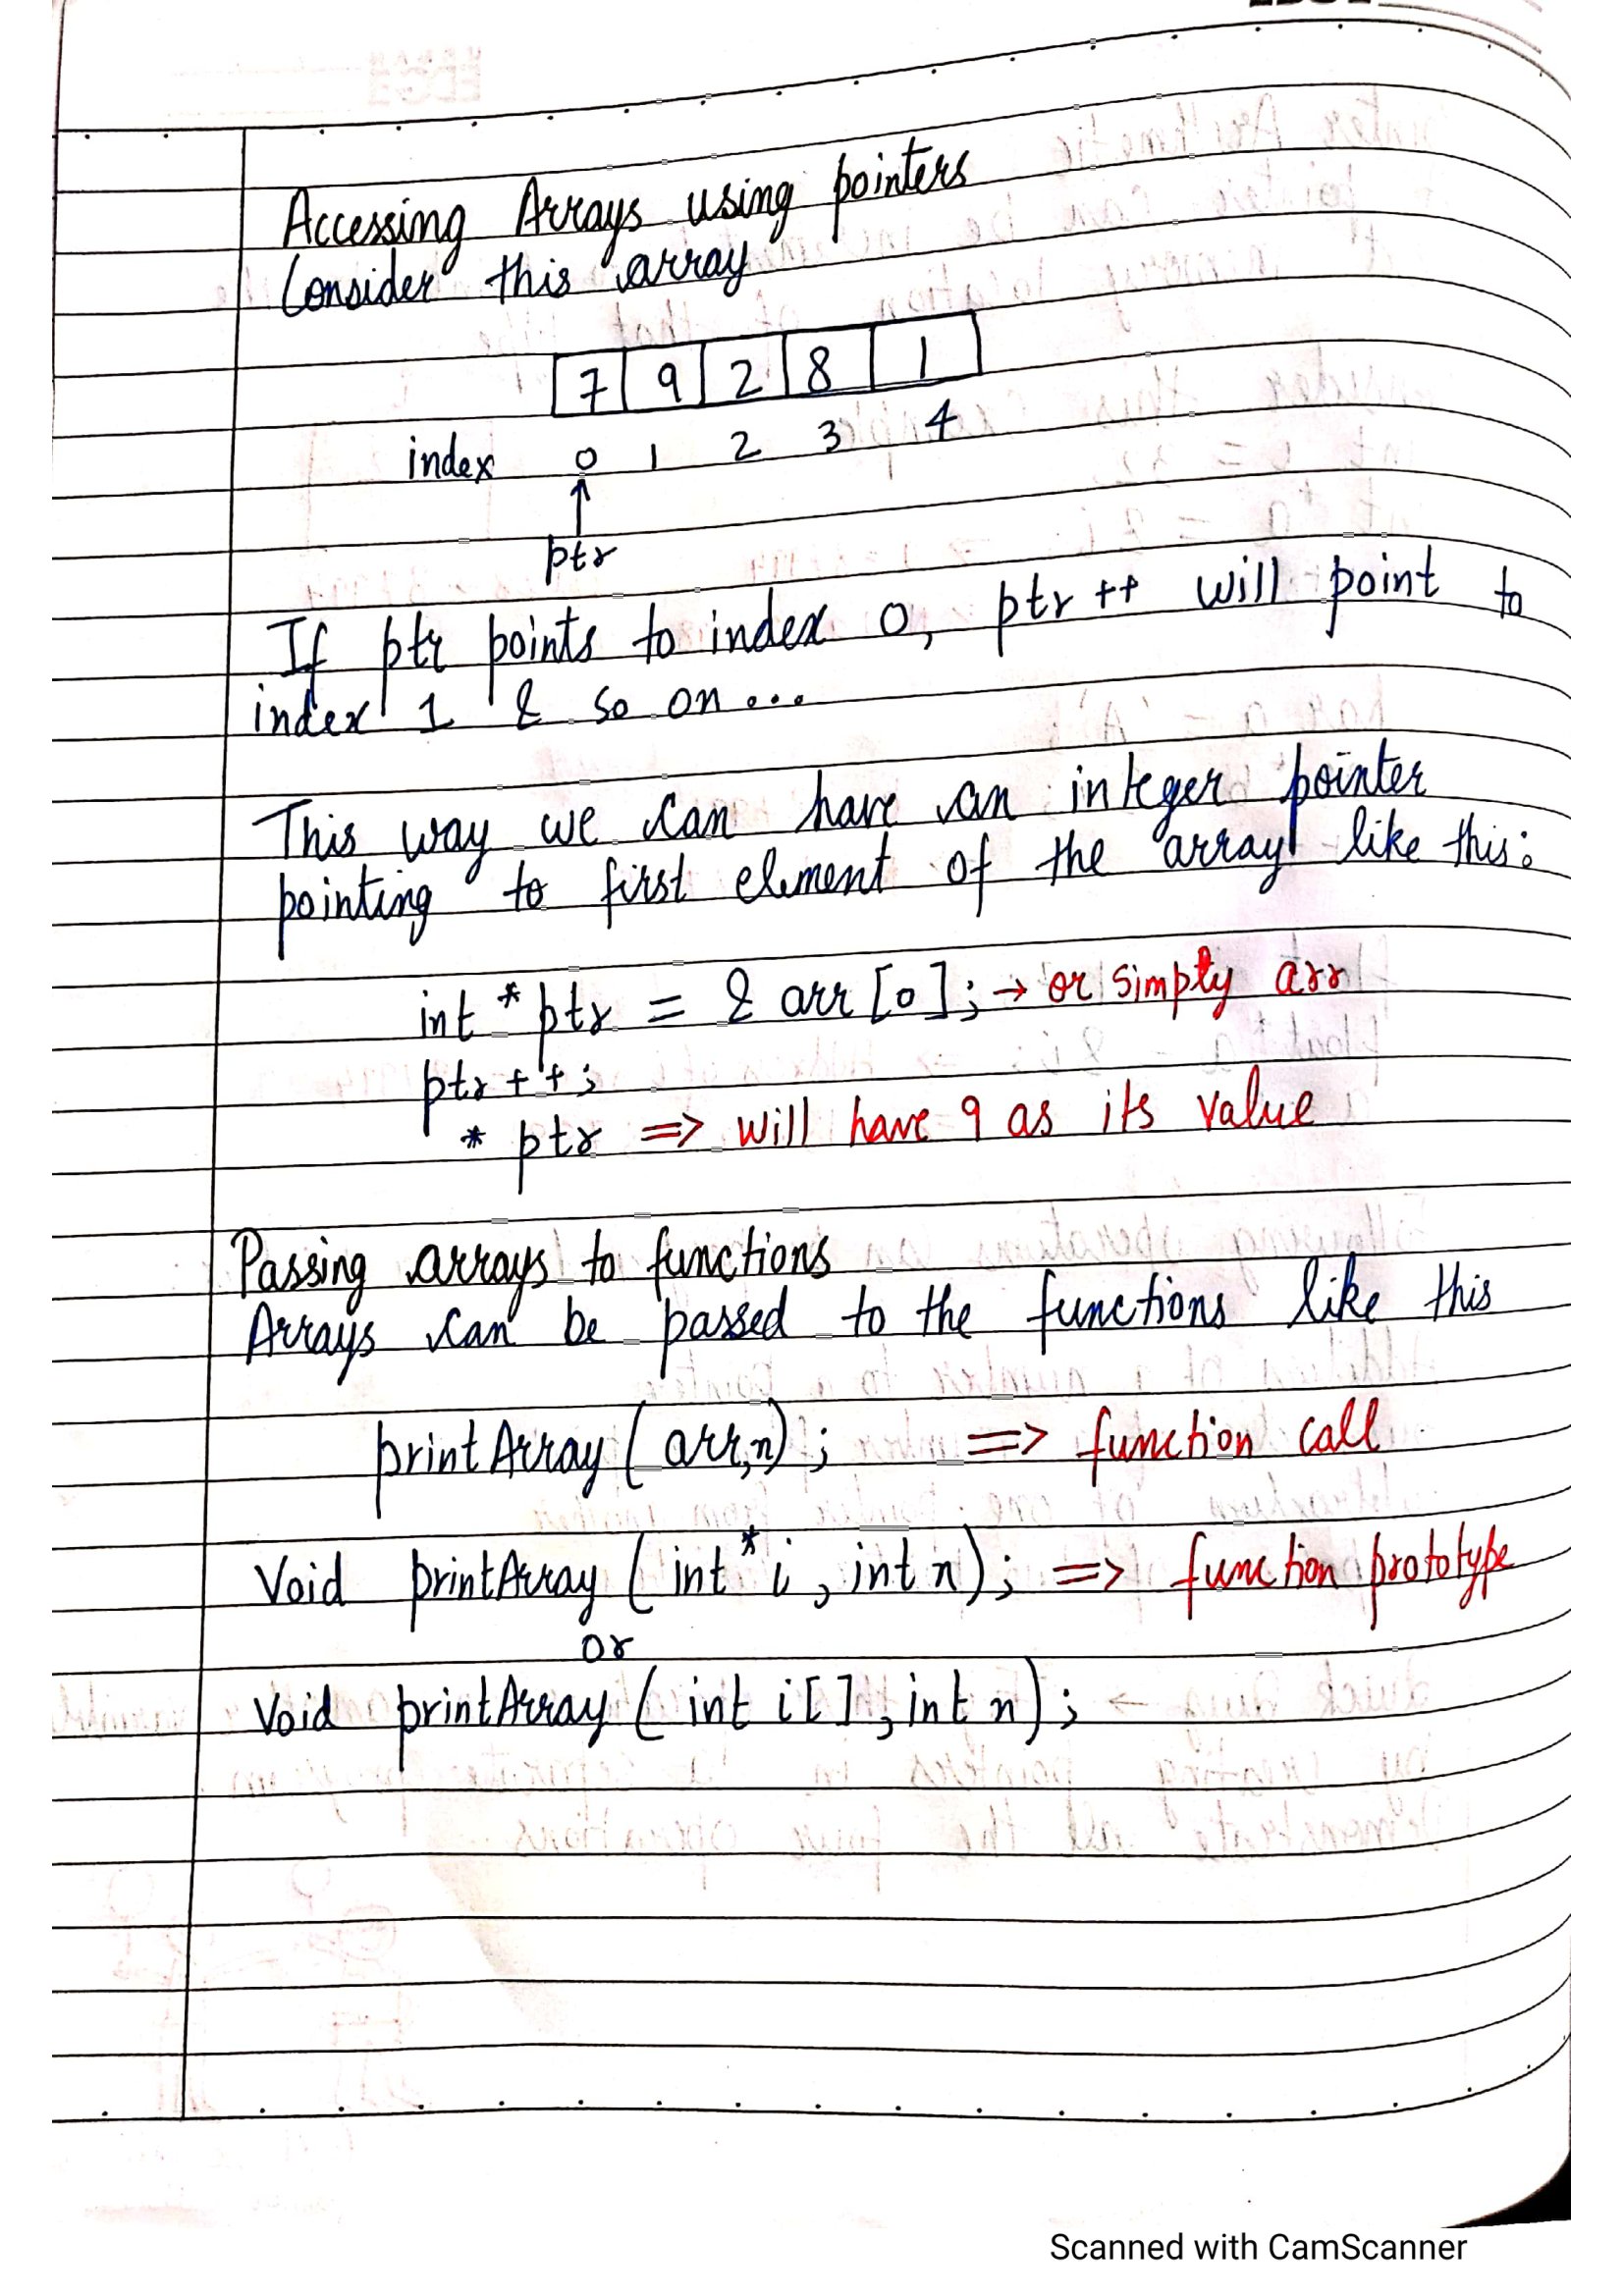 Accessing Arrays using pointers
Consider this array
7 9 2 8 1
index 0 1 2 3 4
ptr
If ptr points to index 0, ptr++ will point to
index 1 & so on...
This way we can have an integer pointer
pointing to first element of the array like this:
int *ptr = & arr[0]; → or simply arr
ptr++;
* ptr => will have 9 as its value
Passing arrays to functions
Arrays can be passed to the functions like this
printArray (arr,n); => function call
Void printArray (int *i, int n); => function prototype
or
Void printArray (int i[], int n);
Scanned with CamScanner